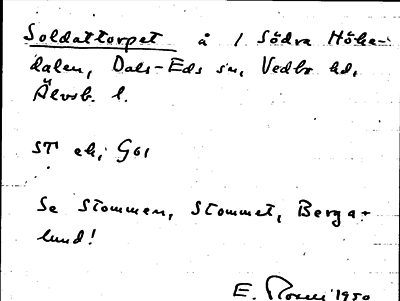 Soldattorpet å 1 Södra Höke-
dalen, Dals-Eds sn, Vedbo hd,
Älvsb. l.
ST ek, G61
Se Stommen, Stommet, Berga-
lund!
E. 1950